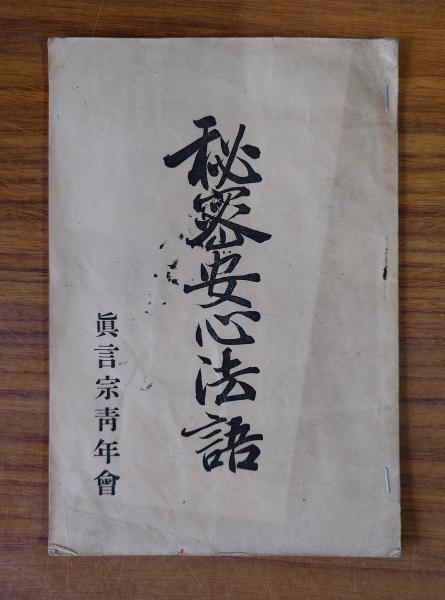 秘密安心法語
眞言宗靑年會